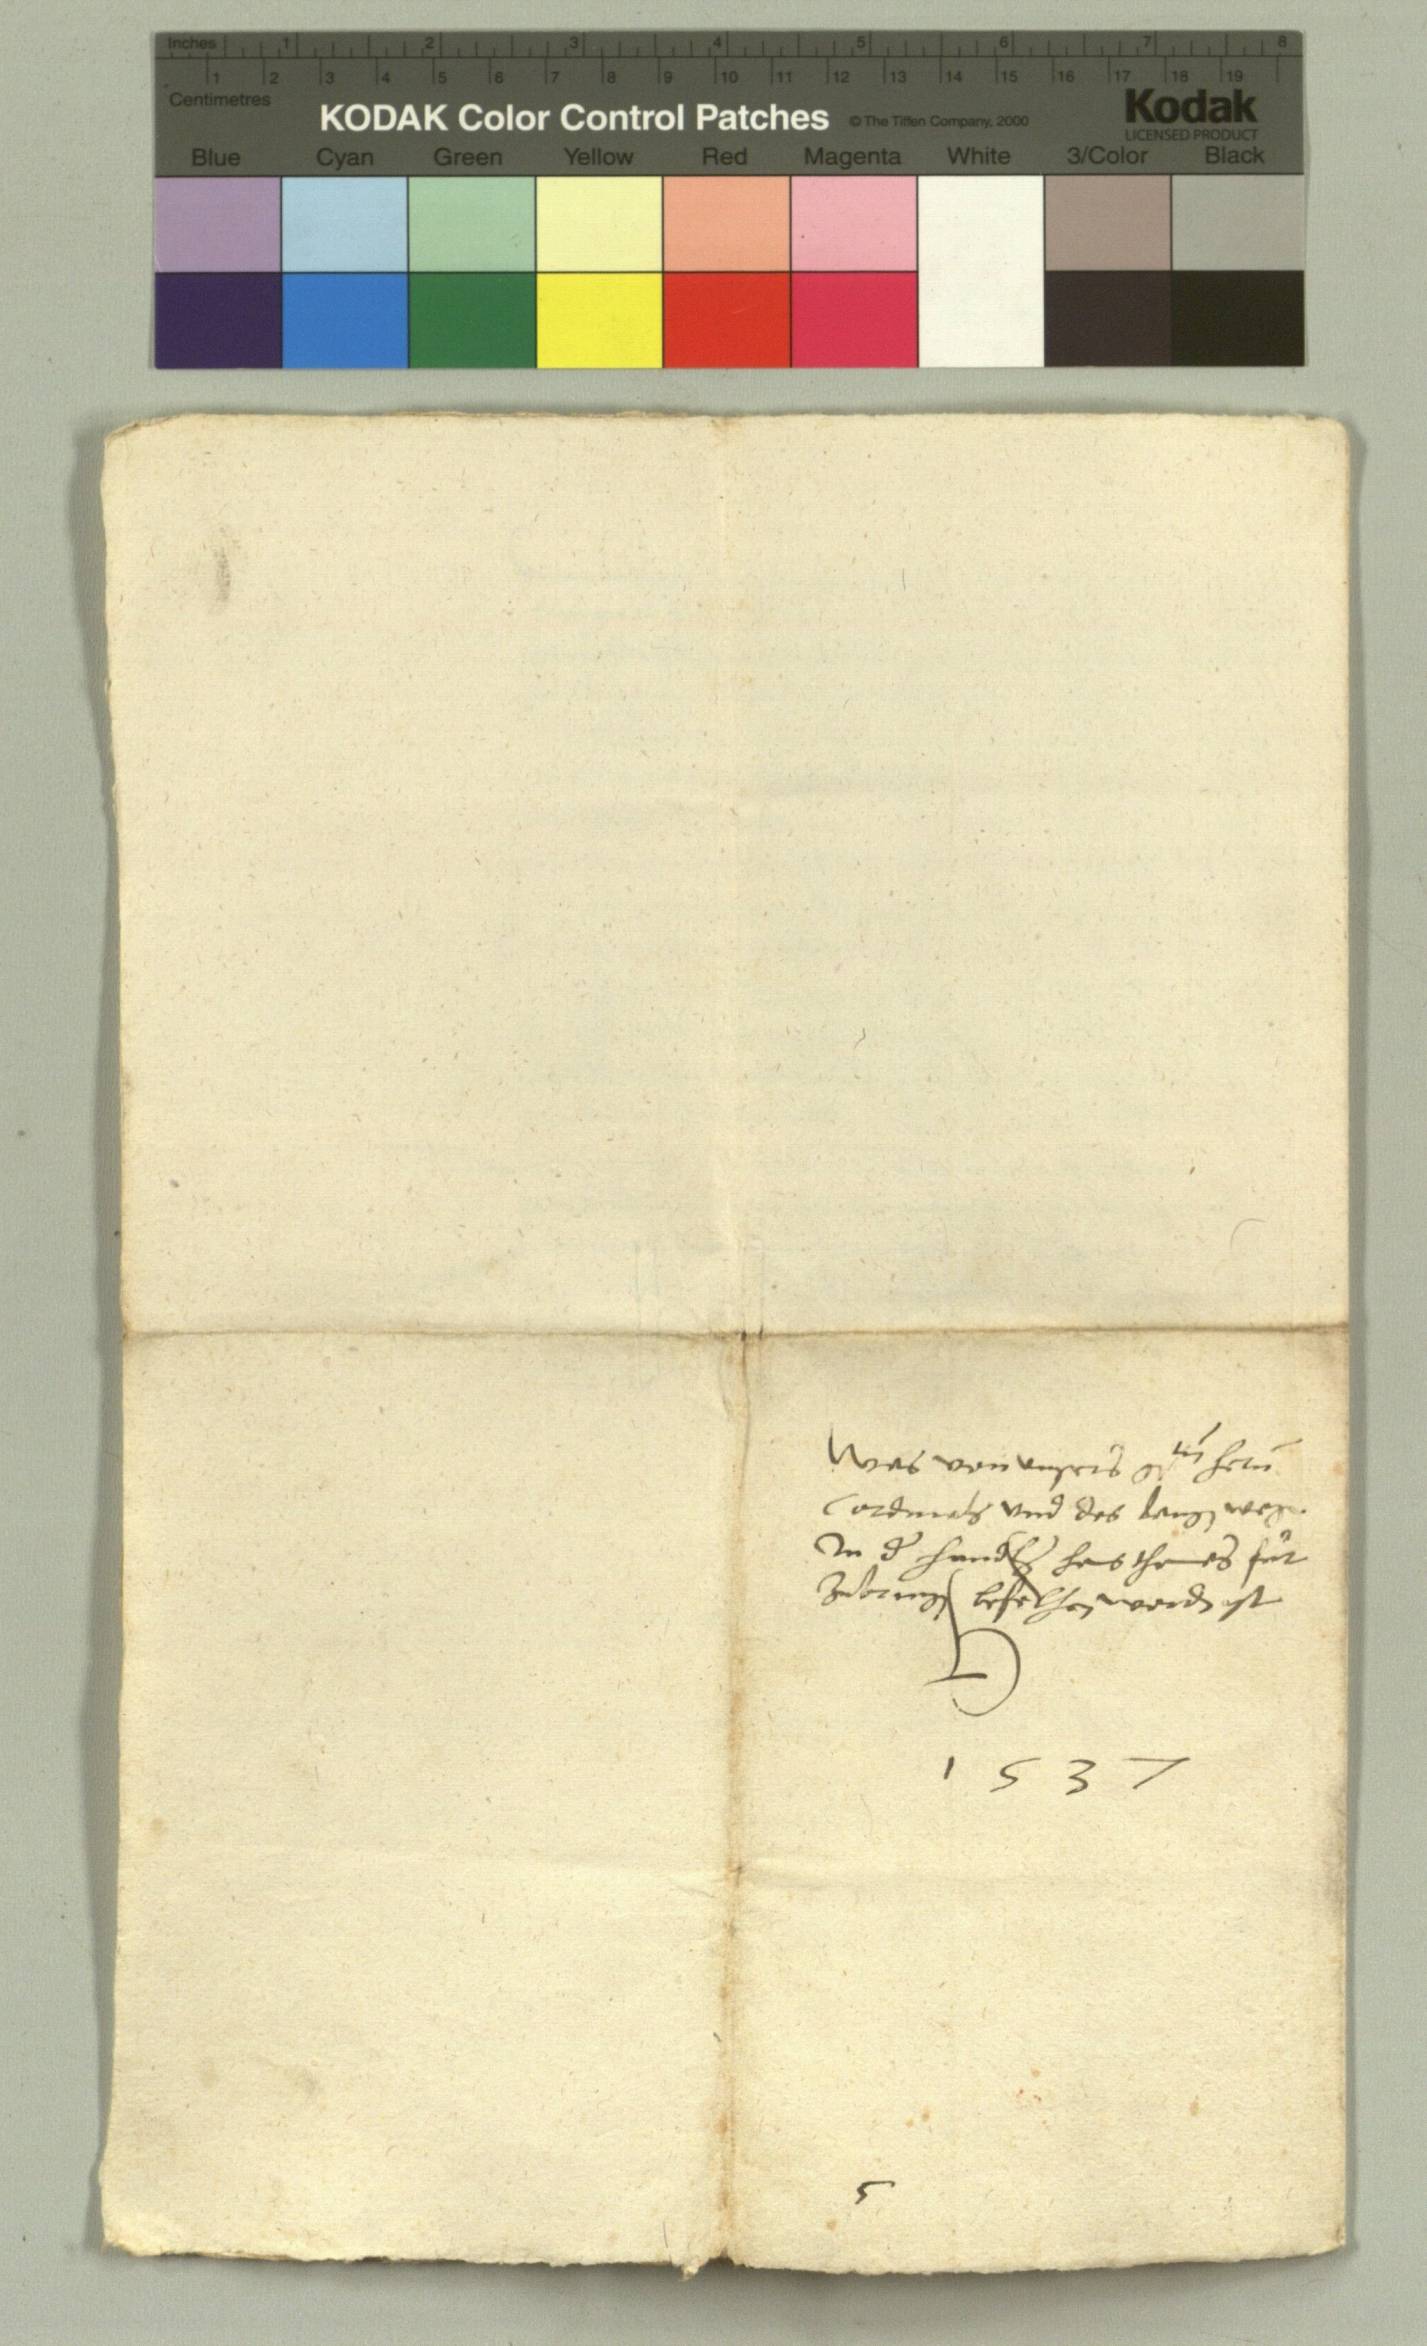 Inches 1 2 3 4 5 6 7 8
1 2 3 4 5 6 7 8 9 10 11 12 13 14 15 16 17 18 19
Centimetres
KODAK Color Control Patches © The Tiffen Company, 2000 Kodak
LICENSED PRODUCT
Blue Cyan Green Yellow Red Magenta White 3/Color Black
Was von wegen hern
Cardinals vnd des
In d
befelhen worden ist
1537
5